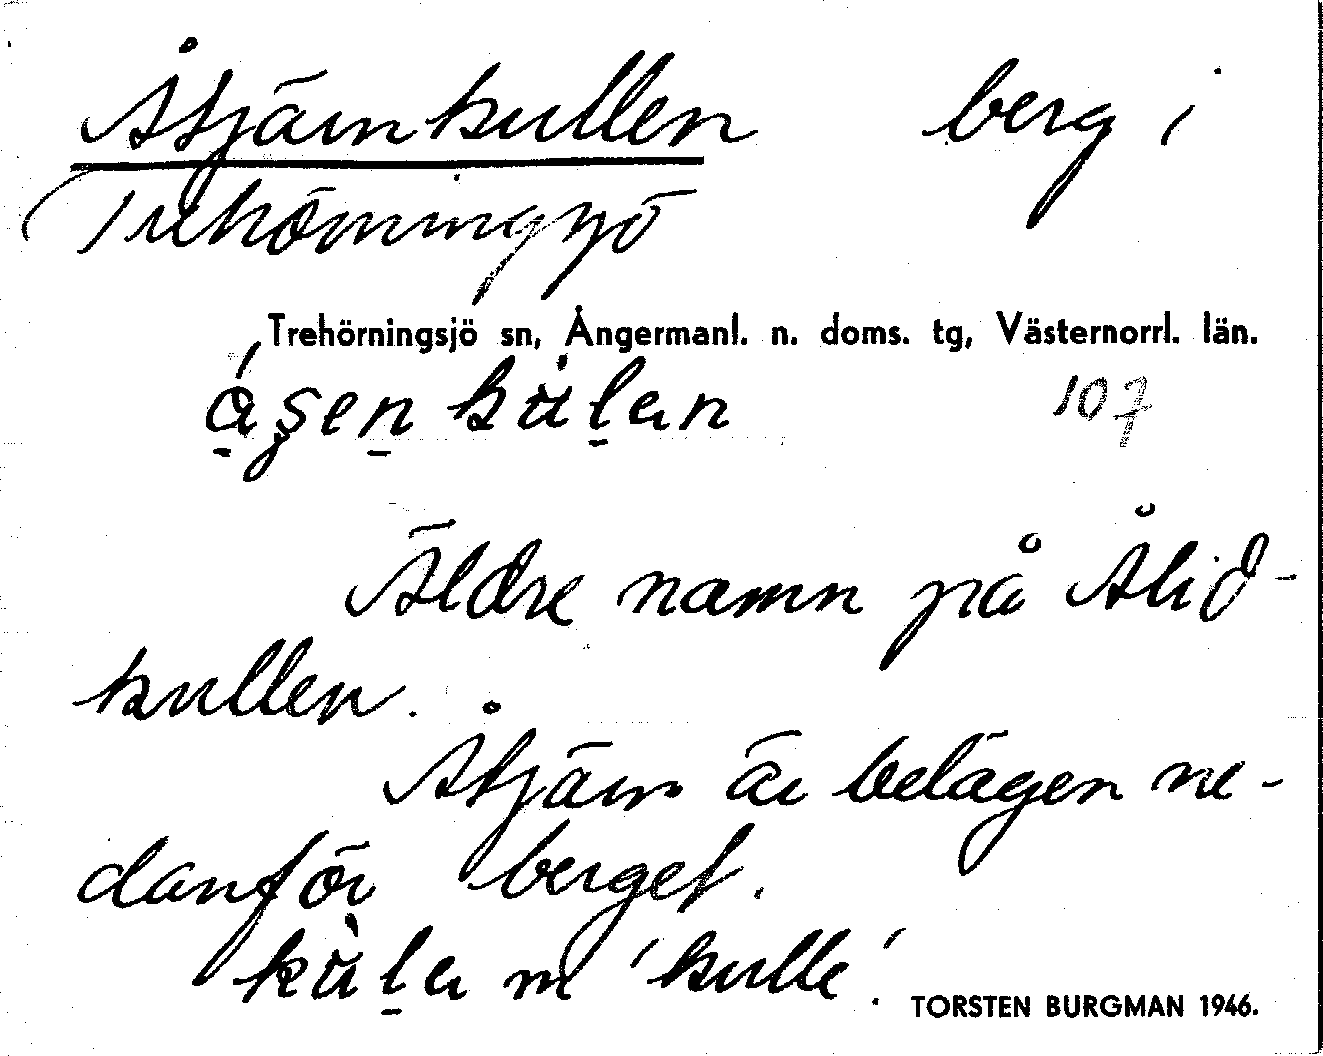 Åtjärnkullen berg i
Trehörningsjö
Trehörningsjö sn, Ångermanl. n. doms. tg, Västernorrl. län.
107
Äldre namn på Ålid-
kullen.
Åtjärn är belägen ne-
danför berget.
m 'kulle'.
TORSTEN BURGMAN 1946.